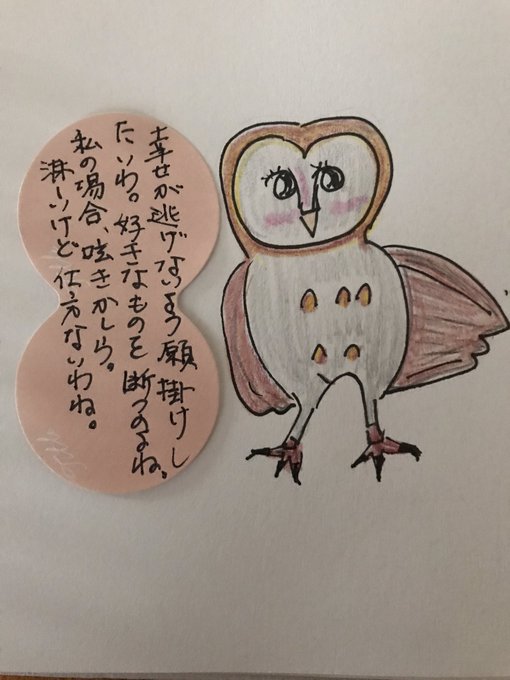 幸せが逃げないよう願掛けし
たいわ。好きなものを断つのよね。
私の場合、呟きかしら。
淋しいけど仕方ないわね。